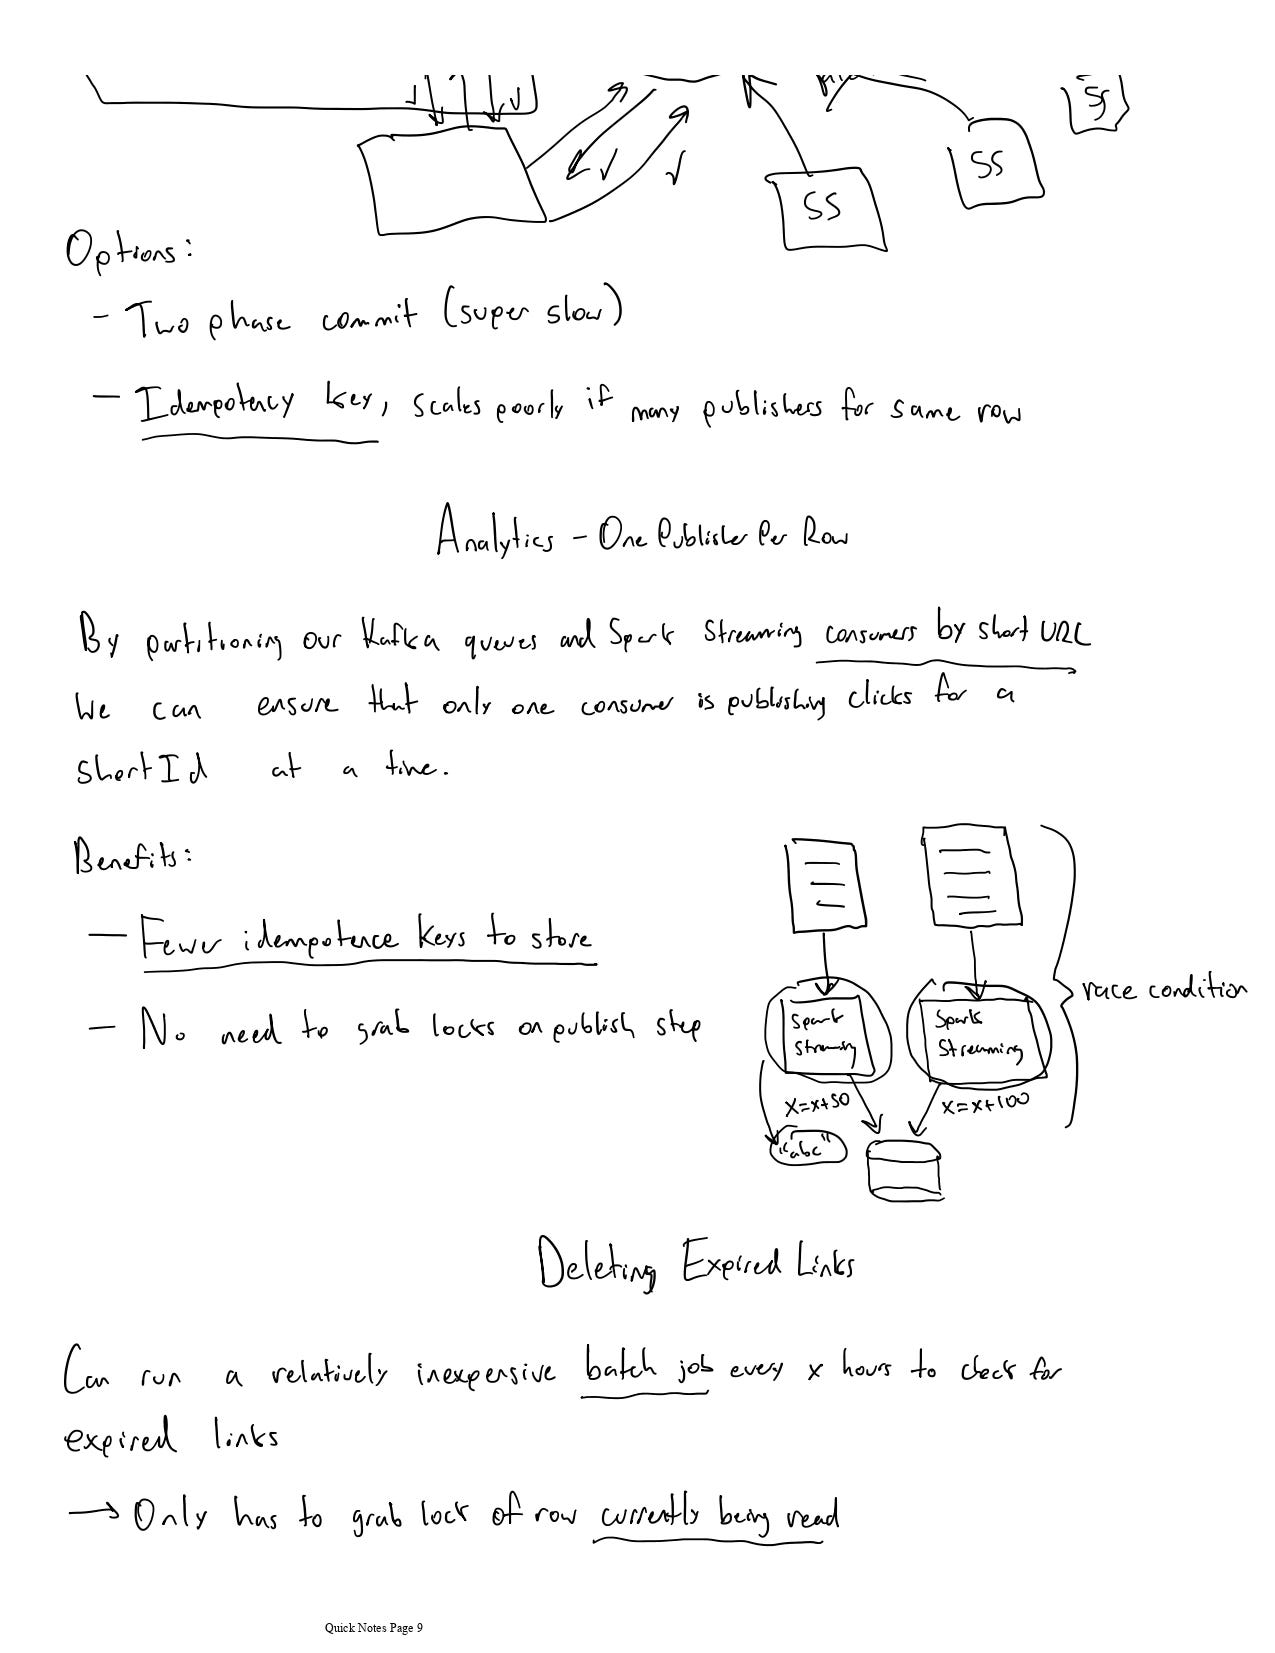 SS
SS
SS
Options:
- Two phase commit (super slow)
- Idempotency key, scales poorly if many publishers for same row
Analytics - One Publisher Per Row
By partitioning our Kafka queues and Spark Streaming consumers by short URL
we can ensure that only one consumer is publishing clicks for a
short Id at a time.
Benefits:
- Fewer idempotence keys to store
- No need to grab locks on publish step
Spark
Streaming
Spark
Streaming
race condition
x=x+50
x=x+100
"abc"
Deleting Expired Links
Can run a relatively inexpensive batch job every x hours to check for
expired links
→ Only has to grab lock of row currently being read
Quick Notes Page 9